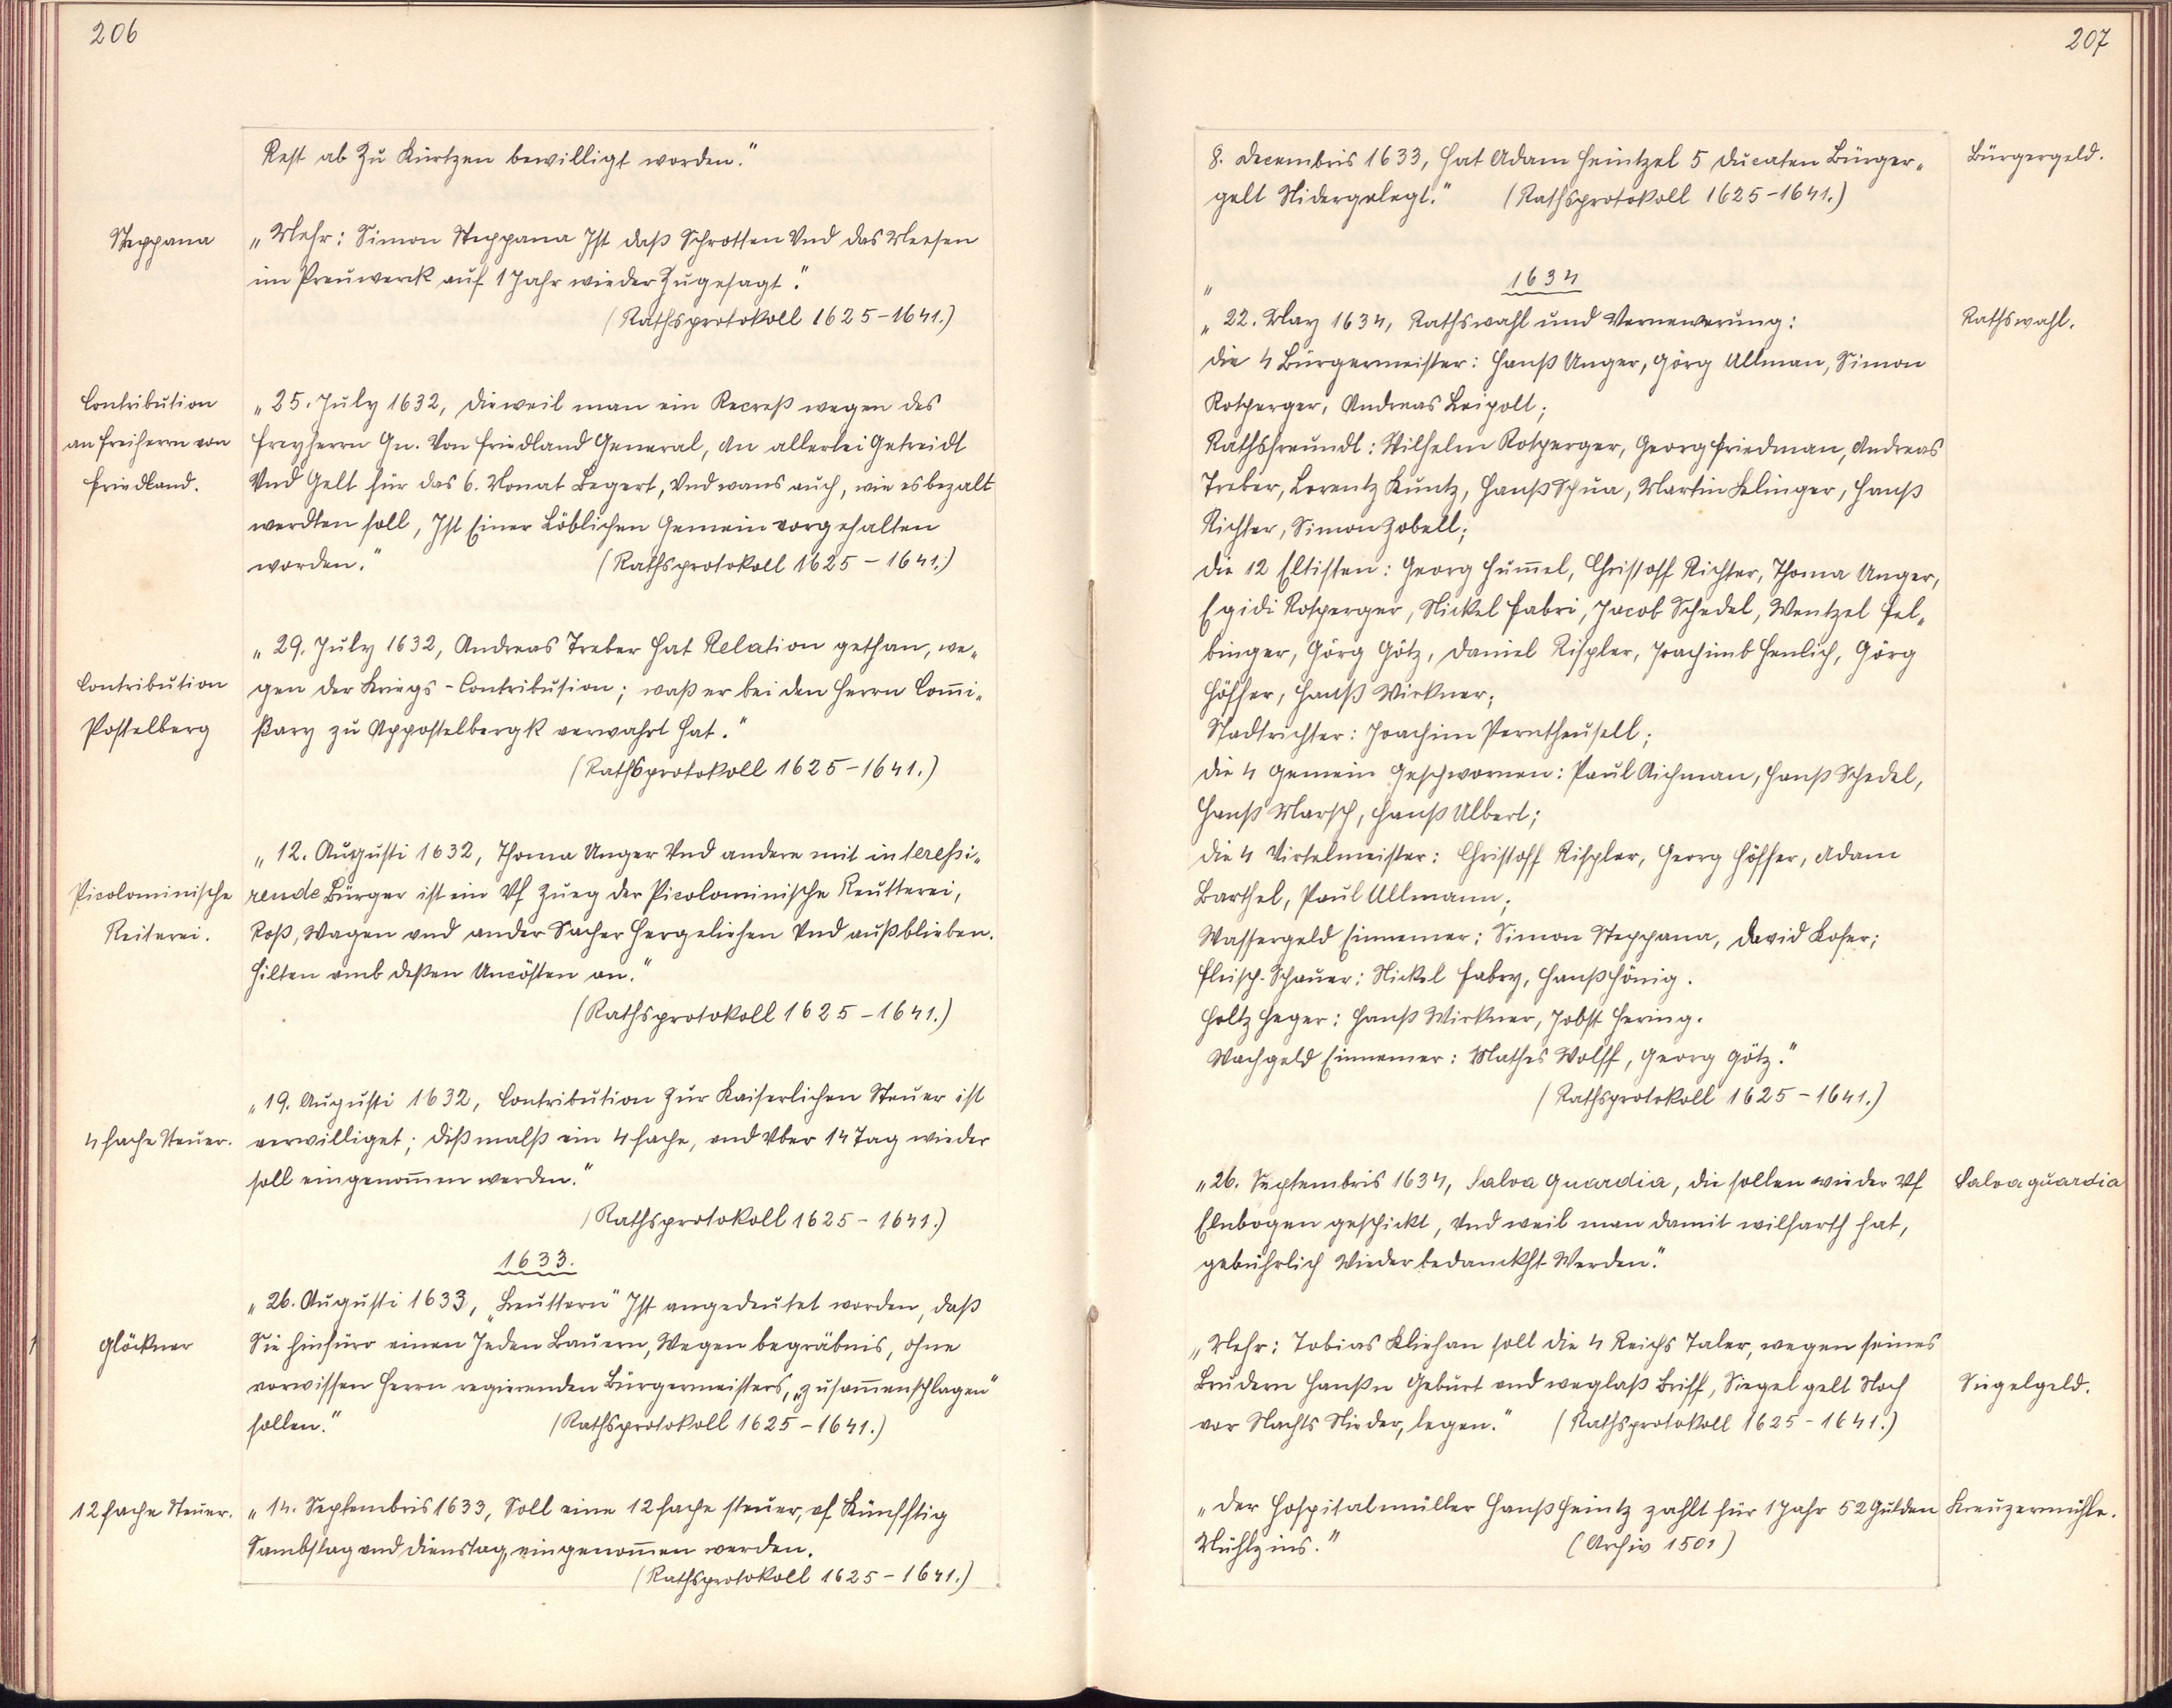 206
Rest ab Zu Kürtzen bewilligt worden."
Steppana
„Mehr: Simon Steppana Ist daß Schrotten Vnd das Meesen
im Preuwerck auf 1 Jahr wieder Zugesagt."
(Rathsprotokoll 1625-1641.)
Contribution
an Freiherrn von
Friedland.
„25. July 1632, dieweil man ein Recreß wegen des
Freyherrn Gn. Von Friedland General, An allerlei Getreidt
Vnd Gelt für das 6. Monat Begert, Vnd wans auch, wie es bezalt
werdten soll, Ist Einer Löblichen Gemein vorgehalten
worden."
(Rathsprotokoll 1625-1641.)
Contribution
Postelberg
„29. July 1632, Andreas Treber hat Relation gethan, we„
gen der Kriegs-Contribution; waß er bei den Herrn Com̄i„
ßary zu Appostelbergk verwahrt hat."
(Rathsprotokoll 1625-1641.)
Picolominische
Reiterei.
„12. Augusti 1632, Thoma Unger Vnd andere mit interessi„
rende Bürger ist ein Vf Zueg der Picolominische Reutterei,
Roß, Wagen vnd ander Sacher hergeliehen Vnd außblieben.
Hilten vmb deßen Uncösten an."
(Rathsprotokoll 1625-1641.)
4fache Steuer.
„19. Augusti 1632, Contribution Zur Kaiserlichen Steuer ist
verwilliget; dißmalß ein 4fache, vnd Vber 14 Tag wieder
soll eingenom̄en werden."
(Rathsprotokoll 1625-1641.)
1633.
Glöckner
„26. Augusti 1633, „Leuttern" Ist angedeutet worden, daß
Sie hinfüro einen Jeden Bauern, Wegen begräbnis, ohne
vorwissen Herrn regierenden Bürgermeisters, „zusam̄enschlagen"
sollen."
(Rathsprotokoll 1625-1641.)
12fache Steuer.
„14. Septembris 1633, Soll eine 12fache steuer, vf Künfftig
Sambstag vnd dienstag, eingenom̄en werden.
(Rathsprotokoll 1625-1641.)
207
8. Decembris 1633, hat Adam Heintzel 5 Ducaten Bürger„
gelt Nidergelegt." (Rathsprotokoll 1625-1641.)
Bürgergeld.
„
1634
„22. May 1634, Rathswahl und Vernewerung:
Rathswahl.
die 4 Bürgermeister: Hanß Unger, Görg Ullman, Simon
Rosperger, Andreas Leipolt;
Rathsfreundt: Wilhelm Rosperger, Georg Friedman, Andreas
Treber, Lorentz Kuntz, Hanß Schua, Martin Klinger, Hanß
Richter, Simon Zobell;
die 12 Eltisten: Georg Hum̄el, Christoff Richter, Thoma Unger,
Egidi Rosperger, Nickel Fabri, Jacob Schedel, Wentzel Fel„
binger, Görg Götz, Daniel Rispler, Joachimb Henlich, Görg
Höffer, Hanß Wirkner;
Stadtrichter: Joachim Perntheusell;
die 4 gemein Geschwornen: Paul Aichman, Hanß Schedel,
Hanß Marsch, Hanß Ulbert;
die 4 Virtelmeister: Christoff Rispler, Georg Höffer, Adam
Barthel, Paul Ullmann;
Wassergeld Einnemer: Simon Steppana, David Koser;
Fleisch-Schauer: Nickel Fabry, Hanß Hönig.
Holtz Heger: Hanß Wirkner, Jobst Hering.
Wachgeld Einnemer: Mathes Wolff, Georg Götz."
(Rathsprotokoll 1625-1641.)
„26. Septembris 1634, Salva Guardia, die sollen wieder Vf
Salva guardia
Elnbogen geschickt, Vnd weil man damit wilfarth hat,
gebührlich Wieder bedanckht Werden."
„Mehr: Tobias Kliehan soll die 4 Reichs Taler, wegen seines
Brudern Hanßn Geburt vnd weglaß Briff, Siegel gelt Noch
Siegelgeld.
vor Nachts Nieder, legen." (Rathsprotokoll 1625-1641.)
„Der Hospitalmüller Hanß Heintz zahlt für 1 Jahr 52 Gulden
Kreuzermühle.
Mühlzins."
(Archiv 1501)